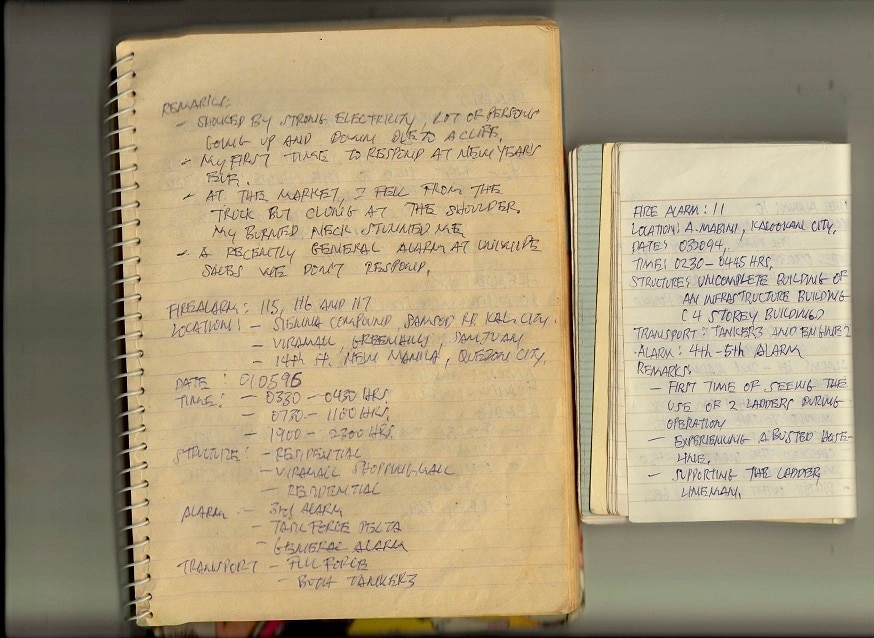 REMARKS:
- SHOCKED BY STRONG ELECTRICITY, LOT OF PERSONS
GOING UP AND DOWN DUE TO A CLIFF.
- MY FIRST TIME TO RESPOND AT NEW YEARS
EVE.
- AT THE MARKET, I FELL FROM THE
TRUCK BUT CLUNG AT THE SHOULDER.
MY BURNED NECK STUNNED ME.
- A RECENTLY GENERAL ALARM AT
WE DON'T RESPOND.
FIRE ALARM: 115, 116 AND 117
LOCATION: - COMPOUND, KAL. CITY.
- VIRAMALL, GREENHILLS, SANJUAN
- 14th ST. NEW MANILA, QUEZON CITY.
DATE: 010596
TIME: - 0330 - 0430 HRS.
- 0730 - 1100 HRS.
- 1900 - 2300 HRS.
STRUCTURE: - RESIDENTIAL
- VIRAMALL SHOPPING-MALL
- RESIDENTIAL
ALARM: - 3rd ALARM
- TASK FORCE DELTA
- GENERAL ALARM
TRANSPORT - FULL FORCE
- BOTH TANKER3
FIRE ALARM: 11
LOCATION: A. MABINI, KALOOKAN CITY.
DATE: 030094.
TIME: 0230-0445 HRS,
STRUCTURE: UNCOMPLETE BUILDING OF
AN INFRASTRUCTURE BUILDING
(4 STOREY BUILDING)
TRANSPORT: TANKER3 AND ENGINE 2
ALARM: 4th-5th ALARM
REMARKS:
- FIRST TIME OF SEEING THE
USE OF 2 LADDERS DURING
OPERATION
- EXPERIENCING A BUSTED HOSE-
LINE.
- SUPPORTING THE LADDER
LINEMAN.